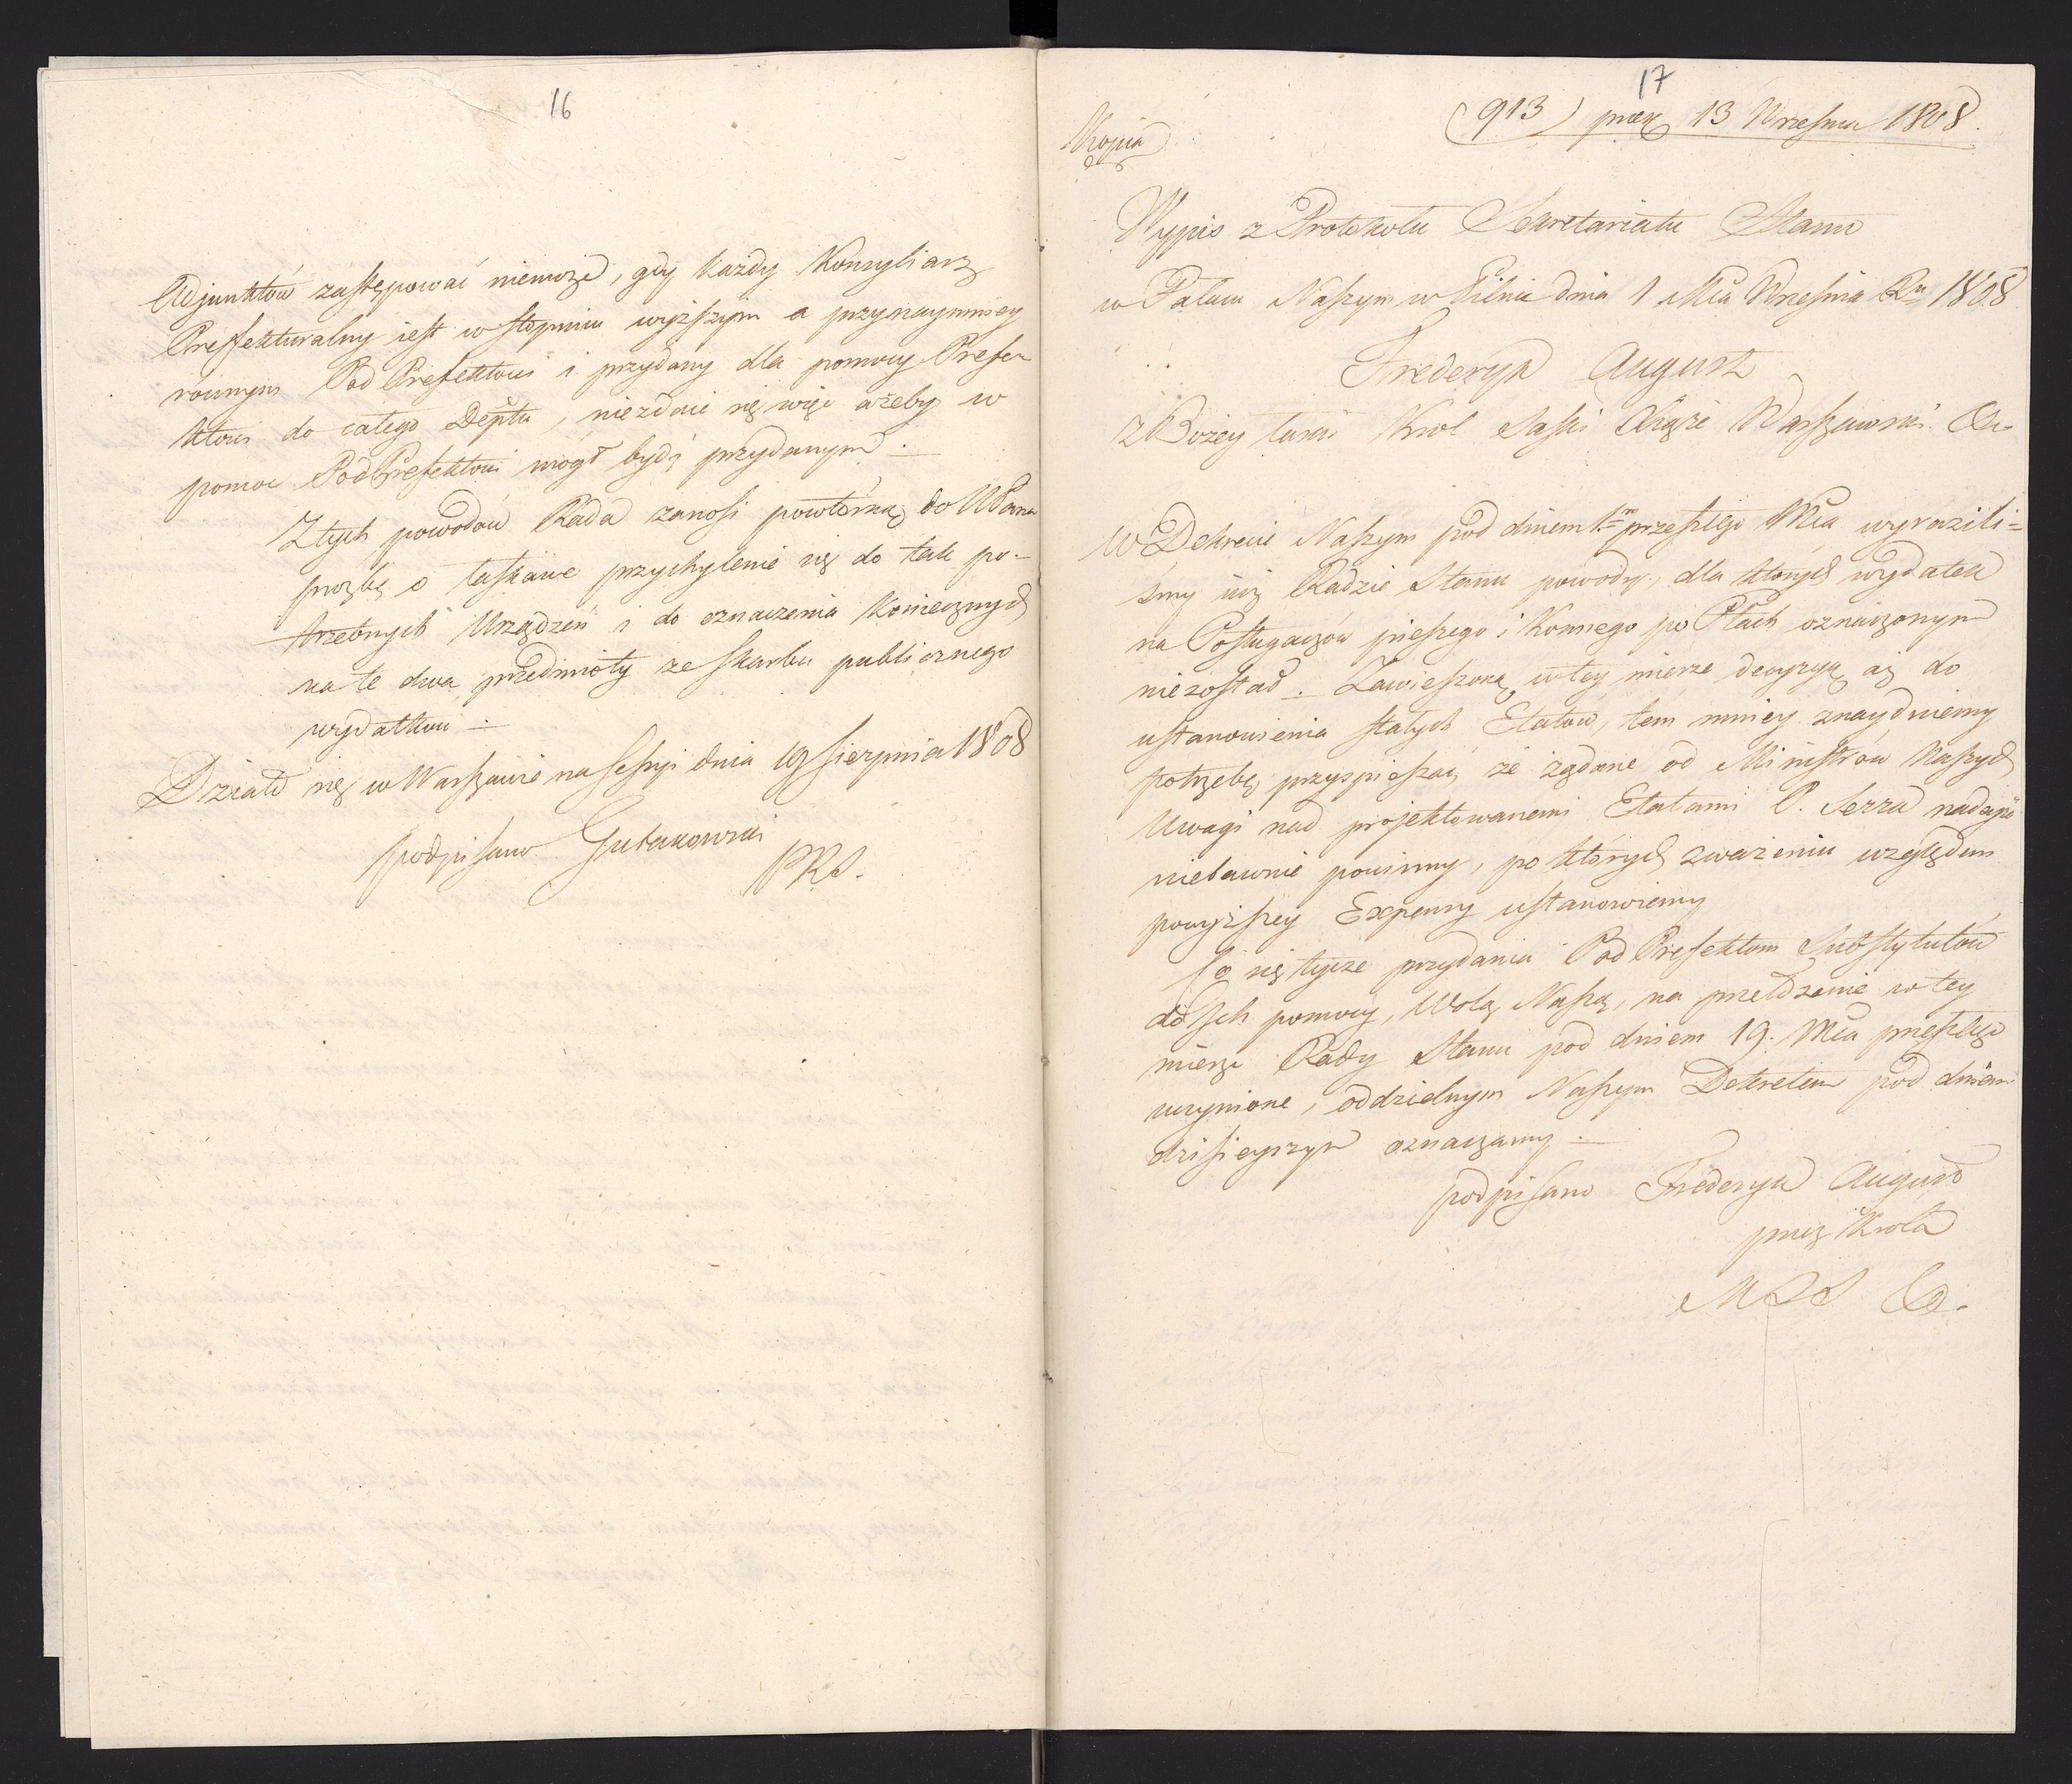 16
Adjunktów zastępować niemoże, gdy każdy Konsyliarz
Prefekturalny iest w stopniu wyższym a przynaymniey
rownym Pod Prefektowi i przydany dla pomocy Prefe-
ktowi do całego Deptu, niezdaie się więc ażeby w
pomoc Pod Prefektowi mógł bydź przydanym.
Z tych powodów Rada zanosi powtórną do W Pana
prozbę o łaskawe przychylenie się do tak po-
trzebnych Urządzeń i do oznaczenia Koniecznych
na te dwa przedmioty ze skarbu publicznego
wydatków
Działo się w Warszawie na Sessyi dnia 19 Sierpnia 1808
podpisano Gutakowski
PRS.
17
(913) præs 13 Wrzesnia 1808.
Kopia
Wypis z Protokołu Sekretariatu Stanu
w Pałacu Naszym w Pilnic dnia 1 Mca Wrzesnia Ru 1808
Frederyk August
z Bożey łaski Krol Saski Xiąże Warszawski &c
W Dekrecie Naszym pod dniem 1m przeszłego Mca wyrazili=
śmy iuż Radzie Stanu powody, dla ktorych wydatek
na Posługaczów pieszego i Konnego po Ptach oznaczonym
niezostał. Zawieszoną w tey mierze decyzyą aż do
ustanowienia stałych Etatow, tem mniey znayduiemy
potrzebę przyspieszać, że żądane od Ministrow Naszych
Uwagi nad projektowanemi Etatami P. Serra nadeyść
niebawnie powinny, po których zważeniu względem
powyższey Expensy ustanowiemy
Co się tycze przydania Pod Prefektom Substytutow
do Ich pomocy, Wolą Naszą, na przełożenie w tey
mierze Rady Stanu pod dniem 19. Mca przeszłego
uczynione, oddzielnym Naszym Dekretem pod dniem
dzisieyszym oznaczamy.
podpisano Frederyk August
przez Krola
M S S &.